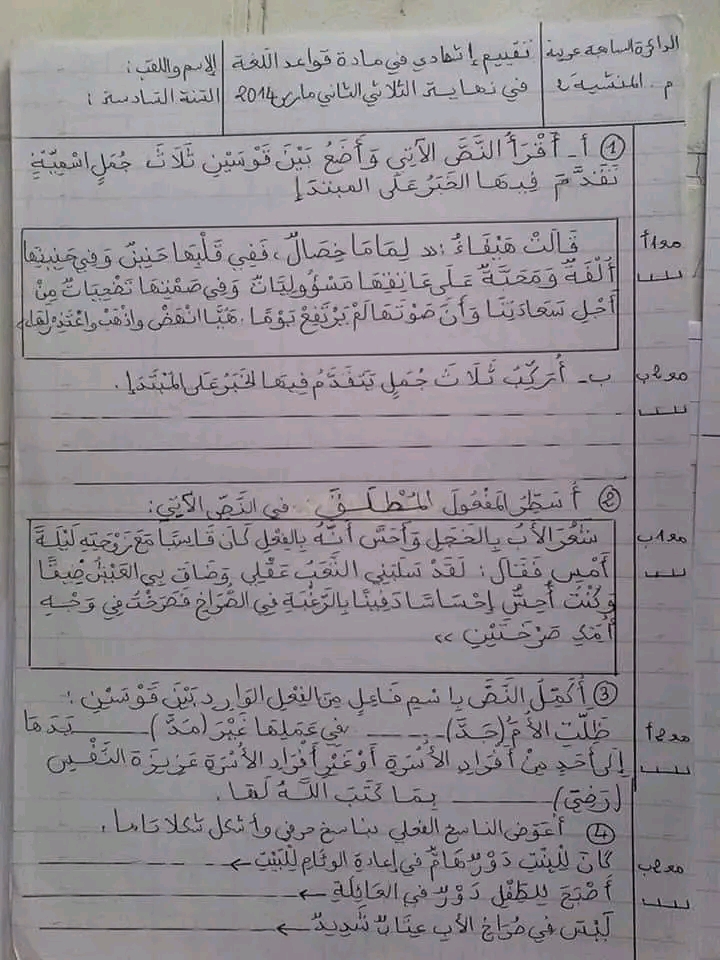 الدائرة السابعة عربية
م. المنشية 2
تقييم إشهادي في مادة قواعد اللغة
في نهاية الثلاثي الثاني مارس 2014
الإسم واللقب :
السنة السادسة :
① أ- أَقْرَأُ النَّصَّ الآتِي وَأَضَعُ بَيْنَ قَوْسَيْنِ ثَلَاثَ جُمَلٍ اسْمِيَّةٍ
تَقَدَّمَ فِيهَا الخَبَرُ عَلَى المبتدَإ
مع1أ
قَالَتْ هَيْفَاءُ : « لِمَامَا خِصَالٌ، فَفِي قَلْبِهَا حَنِينٌ وَفِي جَنِينِهَا
أُلْفَةٌ وَمَحَبَّةٌ عَلَى عَاتِقِهَا مَسْؤُولِيَّاتٌ وَفِي صَمْتِهَا تَضْحِيَاتٌ مِنْ
أَجْلِ سَعَادَتِنَا وَأَنَّ صَوْتَهَا لَمْ يَرْتَفِعْ يَوْمًا. هَيَّا انْهَضْ واذْهَبْ واعْتَذِرْ لَهَا»
مع2ب
ب- أُرَكِّبُ ثَلَاثَ جُمَلٍ يَتَقَدَّمُ فِيهَا الخَبَرُ عَلَى المُبْتَدَإ.
② أُسَطِّرُ المَفْعُولَ المُطْلَقَ في النَّصِّ الآتِي:
مع1ب
شَعُرَ الأَبُ بِالخَجَلِ وَأَحَسَّ أَنَّهُ بِالفِعْلِ كَانَ قَاسِيًا مَعَ زَوْجَتِهِ لَيْلَةَ
أَمْسِ فَقَالَ : لَقَدْ سَلَبَنِي التَّعَبُ عَقْلِي وَضَاقَ بِي العَيْشُ ضِيقًا
وَكُنْتُ أُحِسُّ إِحْسَاسًا دَفِينًا بِالرَّغْبَةِ فِي الصُّرَاخِ فَصَرَخْتُ فِي وَجْهِ
أُمِّكِ صَرْخَتَيْنِ »
③ أُكَمِّلُ النَّصَّ بِاسْمِ فَاعِلٍ مِنَ الفِعْلِ الوَارِدِ بَيْنَ قَوْسَيْنِ :
مع2أ
ظَلَّتِ الأُمُّ (جَدَّ) في عَمَلِهَا غَيْرَ (مَدَّ) يَدَهَا
إِلَى أَحَدٍ مِنْ أَفْرَادِ الأُسْرَةِ أَوْ غَيْرِ أَفْرَادِ الأُسْرَةِ عَزِيزَةَ النَّفْسِ
(رَضِيَ) بِمَا كَتَبَ اللَّهُ لَهَا.
④ أعَوِّضُ الناسخ الفعلي بناسخ حرفي وأشكل شكلا تاما.
مع2ب
كَانَ لِلْبِنْتِ دَوْرٌ هَامٌّ فِي إِعَادَةِ الوِئَامِ لِلْبَيْتِ ←
أَصْبَحَ لِلطِّفْلِ دَوْرٌ فِي العَائِلَةِ ←
لَيْسَ فِي صُرَاخِ الأَبِ عِتَابٌ شَدِيدٌ ←